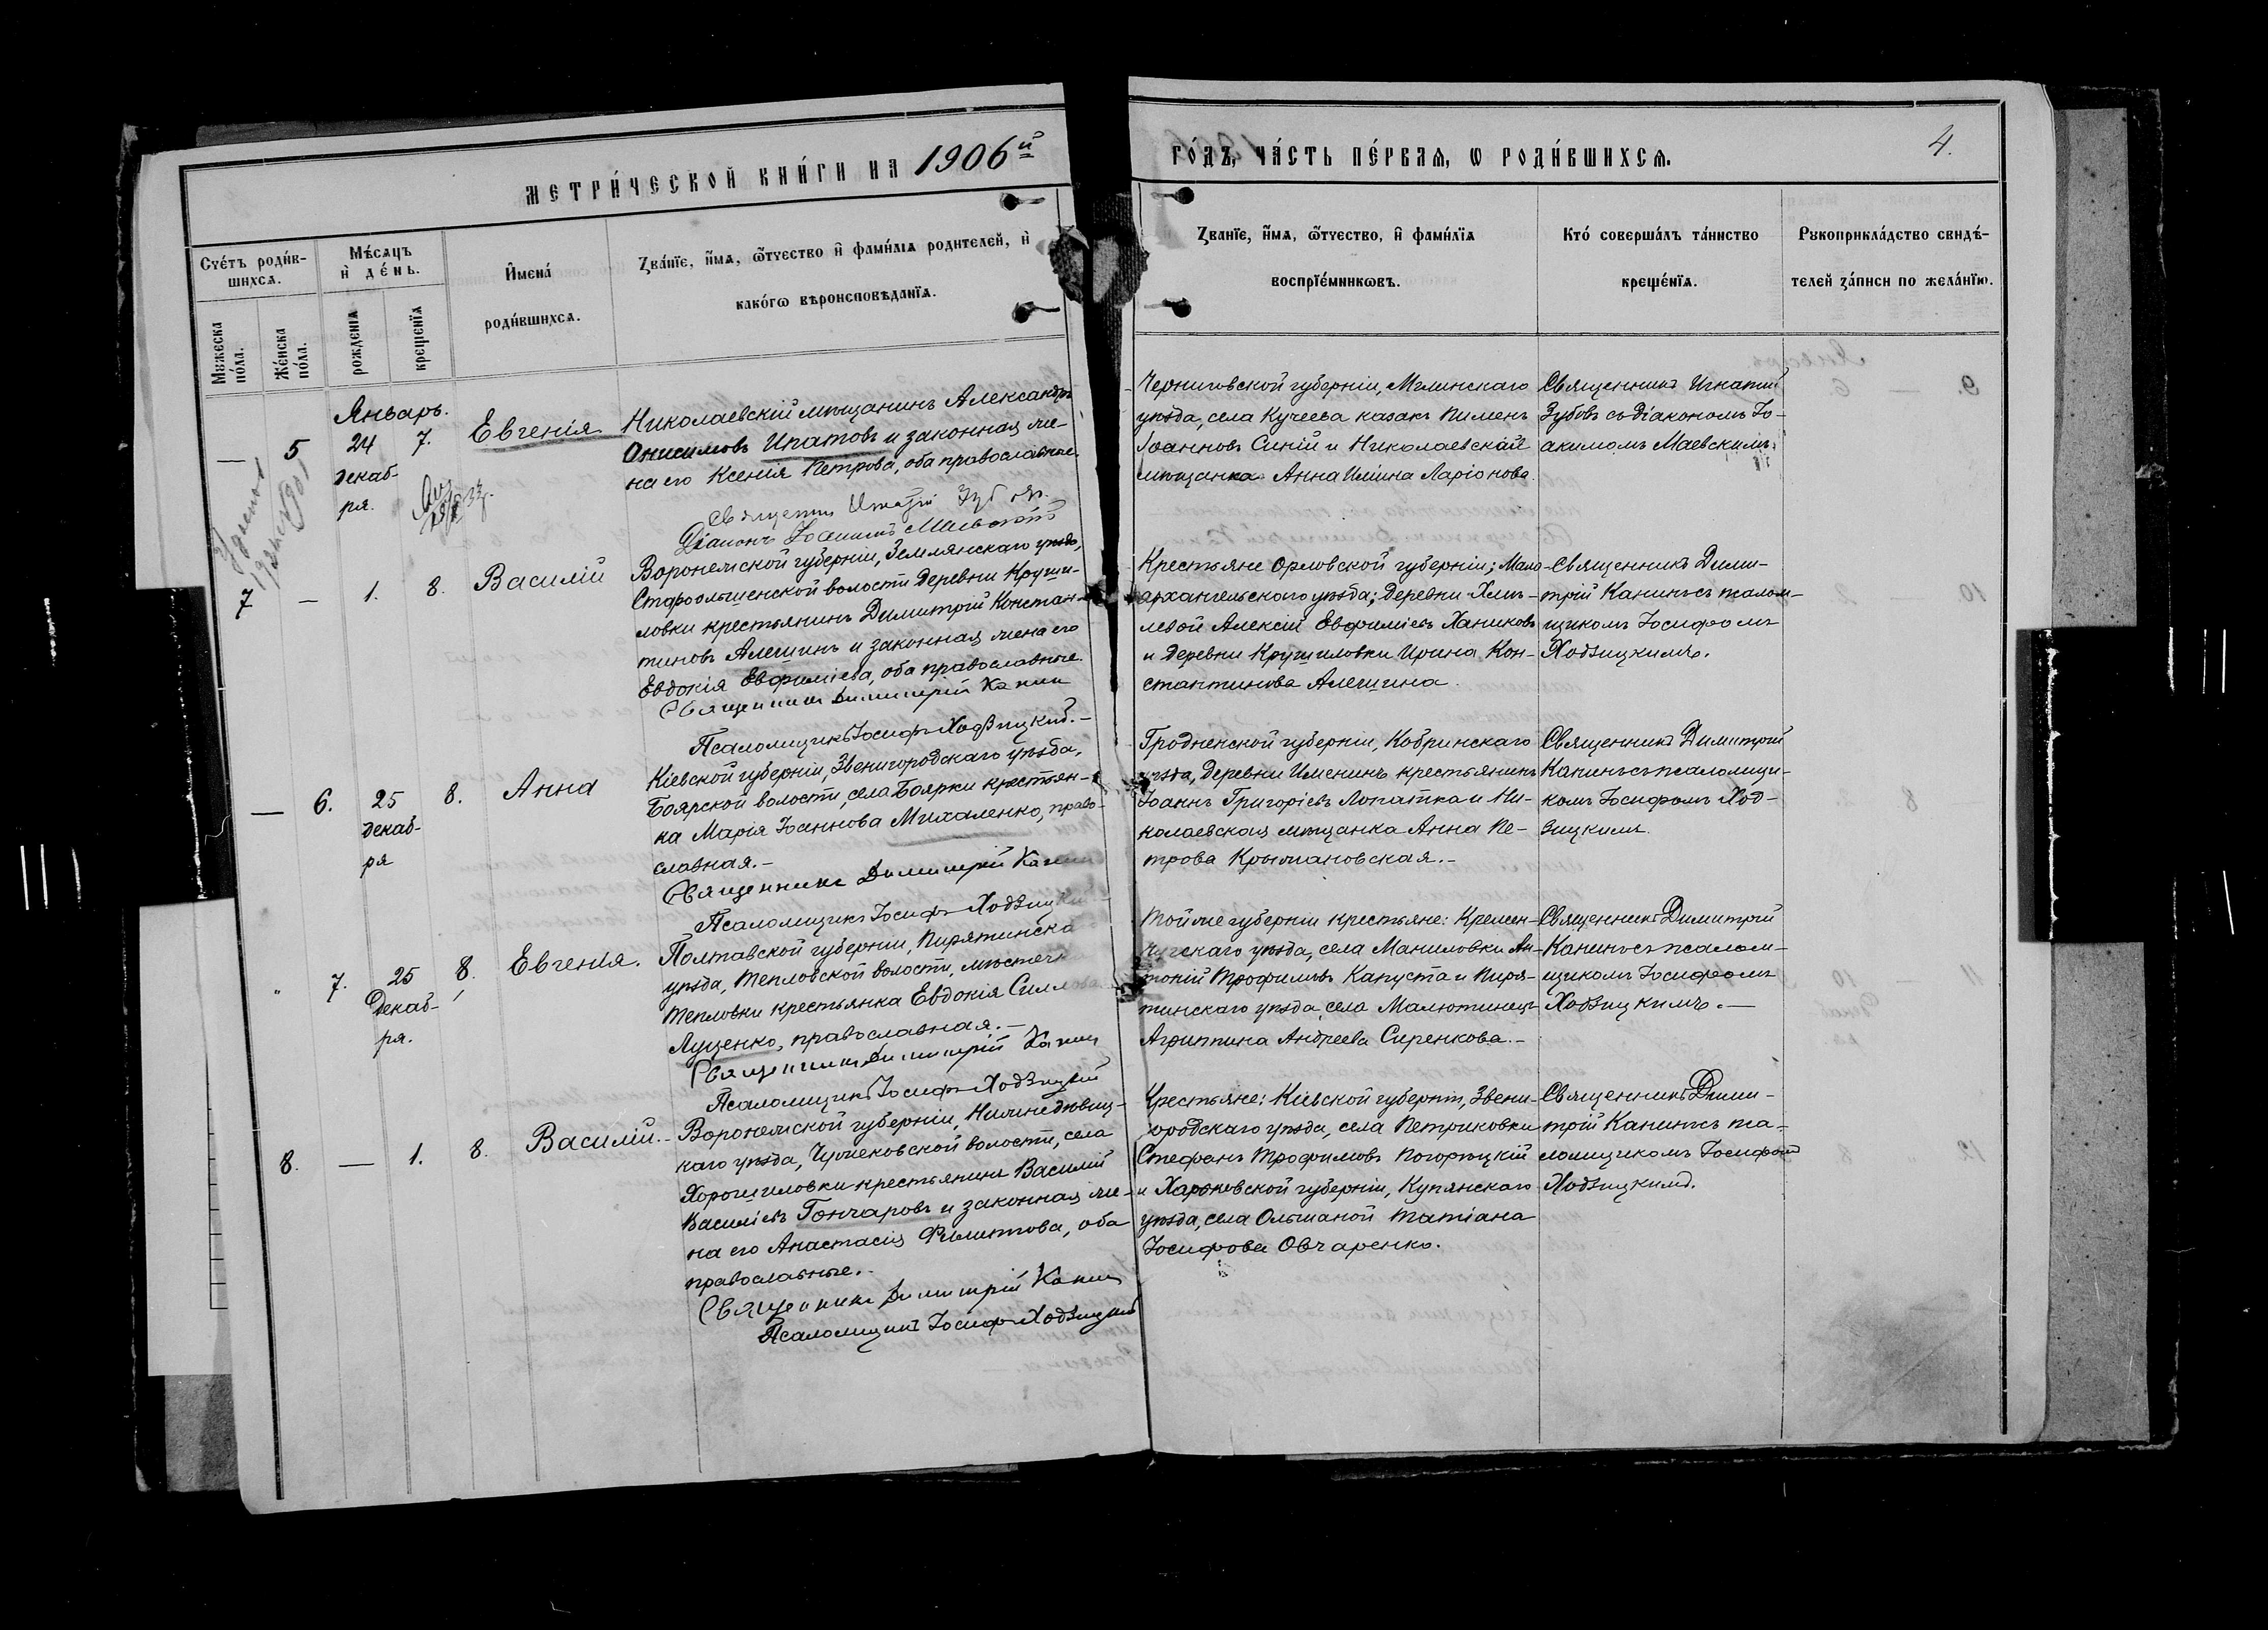 МЕТРИ́ЧЕСКОЙ КНИ́ГИ НА 1906й
ГО́ДЪ, ЧА́СТЬ ПЕ́РВАѦ, Ѡ РОДИ́ВШИХСѦ.
4.
Сче́тъ роди́в-
шихсѧ.
Мꙋжеска
по́ла.
Же́нска
по́ла.
Мѣ́сѧцъ
и҆ де́нь.
рожденїѧ
крещенїѧ
И҆мена́
роди́вшихсѧ.
Зва́нїе, и҆́мѧ, ѻ҆́тчество и҆ фамі́лїѧ родителей, и҆
како́гѡ вѣроисповѣданїѧ.
Званїе, и҆́мѧ, ѻ҆́тчество, и҆ фамі́лїѧ
воспрїе́мникѡвъ.
Кто̀ соверша́лъ та́инство
креще́нїѧ.
Рꙋкоприкла́дство свидѣ́-
телей за́писи по жела́нїю.
Январь.
— 5 24 7. Евгенія
декаб-
ря.
Николаевскій мѣщанинъ Александръ
Онисимовъ Ипатовъ и законная же-
на его Ксенія Петрова, оба православные.
Діаконъ Іоакимъ Маевскій
Черниговской губерніи, Мглинскаго
уѣзда, села Кучеева казакъ Пименъ
Іоанновъ Синій и Николаевская
мѣщанка Анна Ильина Ларіонова.
Священникъ Игнатій
Зубовъ съ діакономъ Іо-
акимомъ Маевскимъ.
7 — 1. 8. Василій
Воронежской губерніи, Землянскаго уѣзда,
Староольшенской волости деревни Круши-
ловки крестьянинъ Димитрій Констан-
тиновъ Алешинъ и законная жена его
Евдокія Евфиміева, оба православные.
Священникъ Димитрій Канин
Псаломщикъ Іосифъ Ходзицкій.-
Крестьяне Орловской губерніи; Мало-
архангельскаго уѣзда; деревни Хмѣ-
левой Алексій Евфиміевъ Ханиковъ
и деревни Крушиловки Ирина Кон-
стантинова Алешина.
Священникъ Дими-
трій Канинъ съ псалом-
щикомъ Іосифомъ
Ходзицкимъ.
— 6. 25 8. Анна
декаб-
ря
Кіевской губерніи, Звенигородскаго уѣзда,
Боярской волости, села Боярки крестьян-
ка Марія Іоаннова Михаленко, право-
славная.-
Священникъ Димитрій Канин
Псаломщикъ Іосифъ Ходзицкій
Гродненской губерніи, Кобринскаго
уѣзда, деревни Именинъ крестьянинъ
Іоаннъ Григоріевъ Лопатка и Ни-
колаевская мѣщанка Анна Пе-
трова Крыжановская.-
Священникъ Димитрій
Канинъ съ псаломщи-
комъ Іосифомъ Ход-
зицкимъ.
" 7. 25 8. Евгенія.
Декаб-
ря.
Полтавской губерніи, Пирятинска
уѣзда, Тепловской волости, мѣстечка
Тепловки крестьянка Евдокія Силлова
Луценко, православная.-
Священникъ Димитрій Канин
Псаломщикъ Іосифъ Ходзицкій
Той же губерніи крестьяне: Кремен-
чугскаго уѣзда, села Маниловки Ан-
тоній Трофимовъ Капуста и Пиря-
тинскаго уѣзда, села Малютинецъ
Агриппина Андреева Сиренкова.-
Священникъ Димитрій
Канинъ съ псалом-
щикомъ Іосифомъ
Ходзицкимъ.—
8. — 1. 8. Василій.
Воронежской губерніи, Нижнедѣвиц-
каго уѣзда, волости, села
Хорошиловки крестьянинъ Василій
Василіевъ Гончаровъ и законная же-
на его Анастасія Филиппова, оба
православные.-
Священникъ Димитрій Канин
Псаломщикъ Іосифъ Ходзицкій
Крестьяне: Кіевской губерніи, Звени-
городскаго уѣзда, села Петриковки
Стефанъ Трофимовъ Погорѣцкій
и Харьковской губерніи, Купянскаго
уѣзда, села Ольшаной Татіана
Іосифова Овчаренко.
Священникъ Дими-
трій Канинъ съ пса-
ломщикомъ Іосифомъ
Ходзицкимъ.